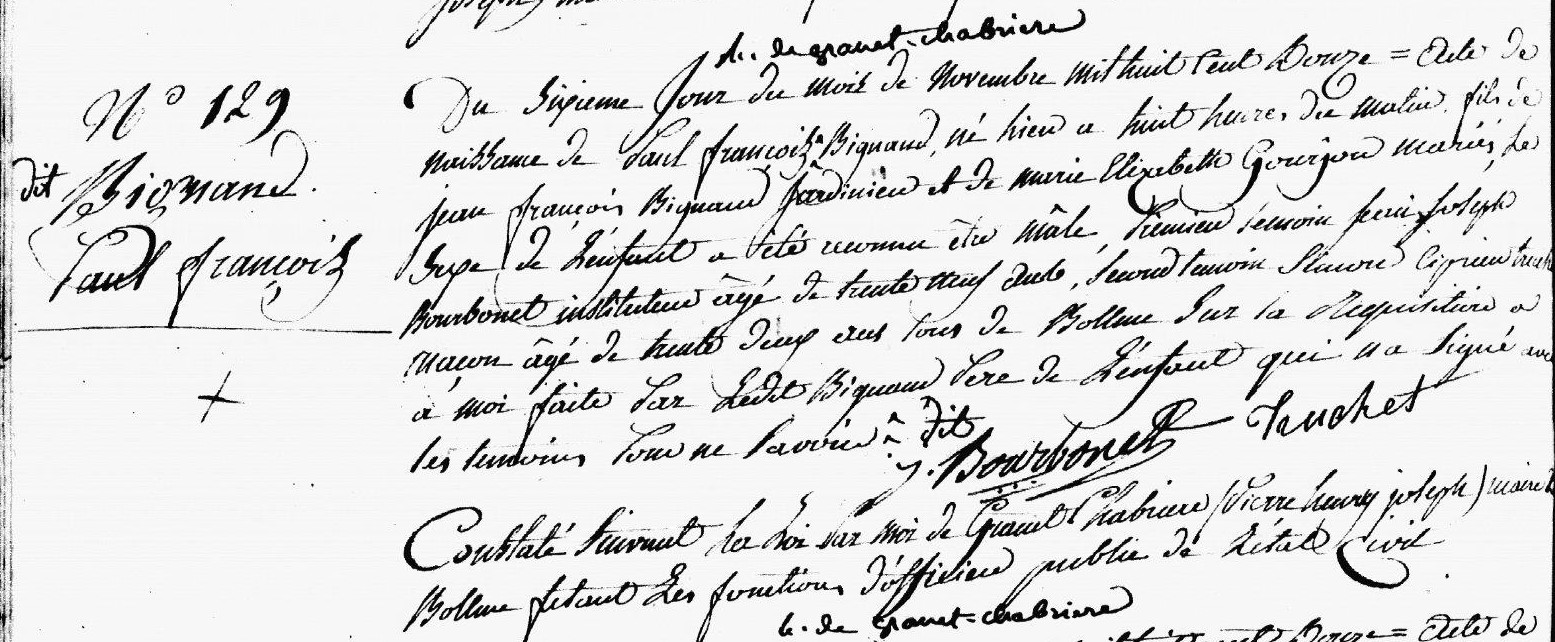 h. de granet-chabriere
N° 129
dit Bignand.
Paul françois
Du Sixieme Jour du mois de Novembre mil huit Cent Douze = Acte de
naissance de Paul françois ^ Bignand, né hier a huit heures du matin, fils de
jean françois Bignand Jardinier et de marie Elizabeth Gourjon mariés, Le
Sexe de L'enfant a été reconnu être mâle, Premier temoin jean joseph
Bourbonet instituteur âgé de trente neuf ans, Second temoin Simon Ciprien
maçon âgé de trente deux ans tous de Bollene Sur la Requisitoire a
a moi faite Par Ledit Bignand Pere de L'enfant qui n'a Signé avec
les temoins Pour ne Savoir = ^ dit
J. Bourbonet Truchet
Constaté Suivant La Loi Par moi de Granet Chabriere (Pierre henry joseph) maire de
Bollene fesant Les fonctions d'officier public de L'état Civil
h. de granet-chabriere
Douze = Acte de